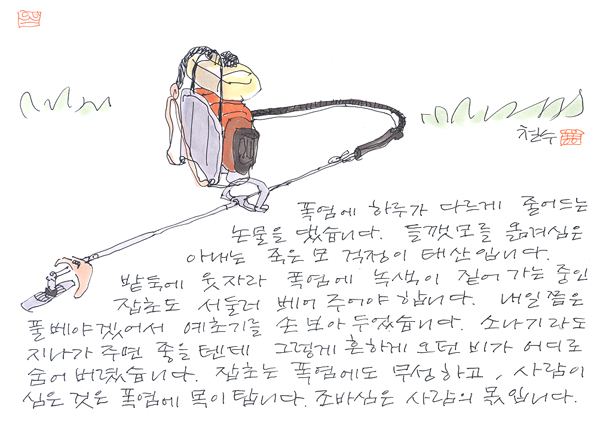 철수
폭염에 하루가 다르게 줄어드는
논물을 댔습니다. 들깻모를 옮겨심은
아내는 죽은 모 걱정이 태산입니다.
밭둑에 웃자라 폭염에 녹색이 짙어 가는 중인
잡초도 서둘러 베어 주어야 합니다. 내일쯤은
풀베야겠어서 예초기를 손 보아 두었습니다. 소나기라도
지나가 주면 좋을텐데 그렇게 흔하게 오던 비가 어디로
숨어 버렸습니다. 잡초는 폭염에도 무성하고, 사람이
심은 것은 폭염에 목이 탑니다. 조바심은 사람의 몫입니다.